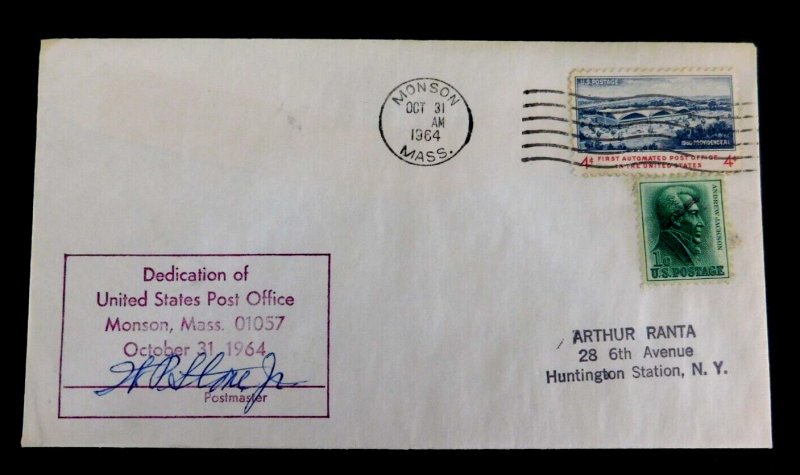 MONSON
OCT 31
AM
1964
MASS.
U.S. POSTAGE
1960 PROVIDENCE, R.I.
4¢ FIRST AUTOMATED POST OFFICE 4¢
IN THE UNITED STATES
ANDREW JACKSON
1¢
U.S. POSTAGE
Dedication of
United States Post Office
Monson, Mass. 01057
October 31, 1964
Jr
Postmaster
ARTHUR RANTA
28 6th Avenue
Huntington Station, N. Y.